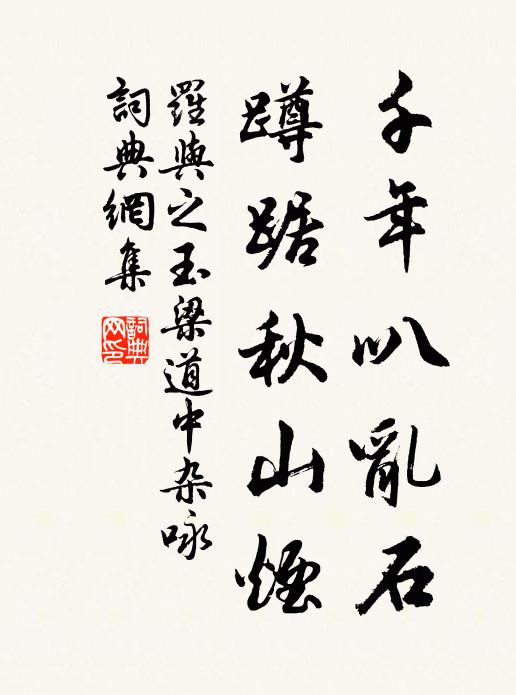 千年叭亂石
蹲踞秋山煙
羅與之玉梁道中杂咏
詞典網集
詞典网印